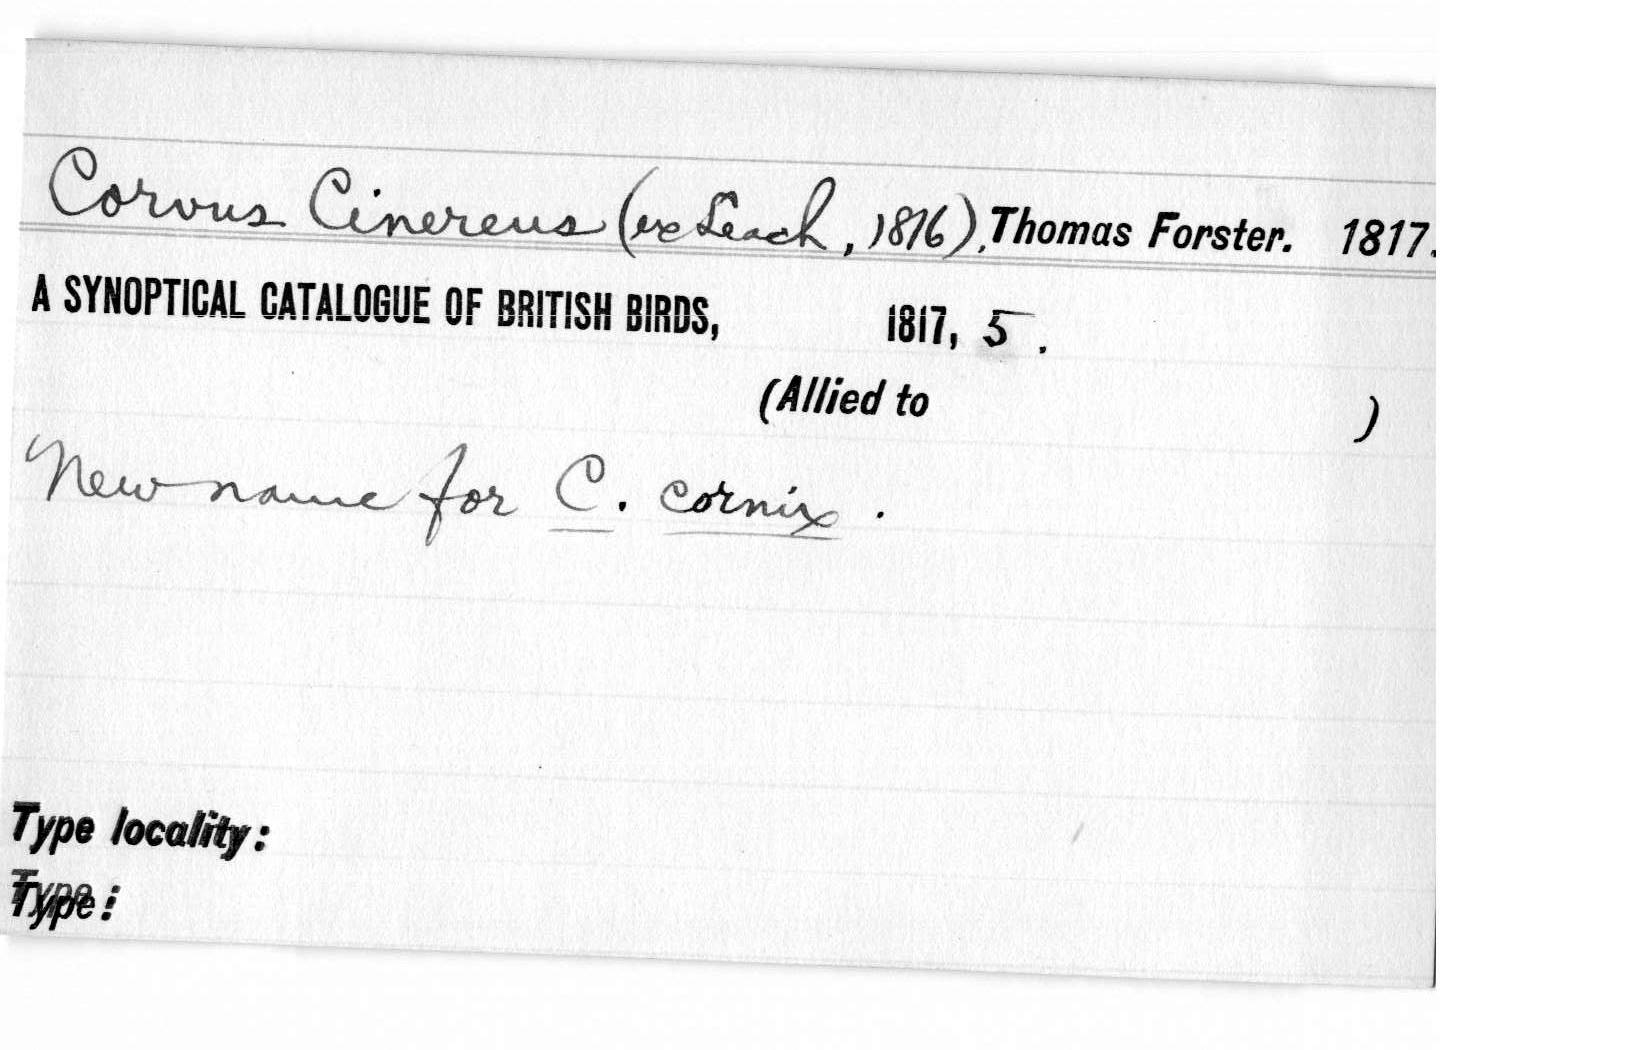 Corvus Cinereus (ex Leach, 1816), Thomas Forster. 1817.
A SYNOPTICAL CATALOGUE OF BRITISH BIRDS, 1817, 5.
(Allied to )
New name for C. cornix.
Type locality:
Type: